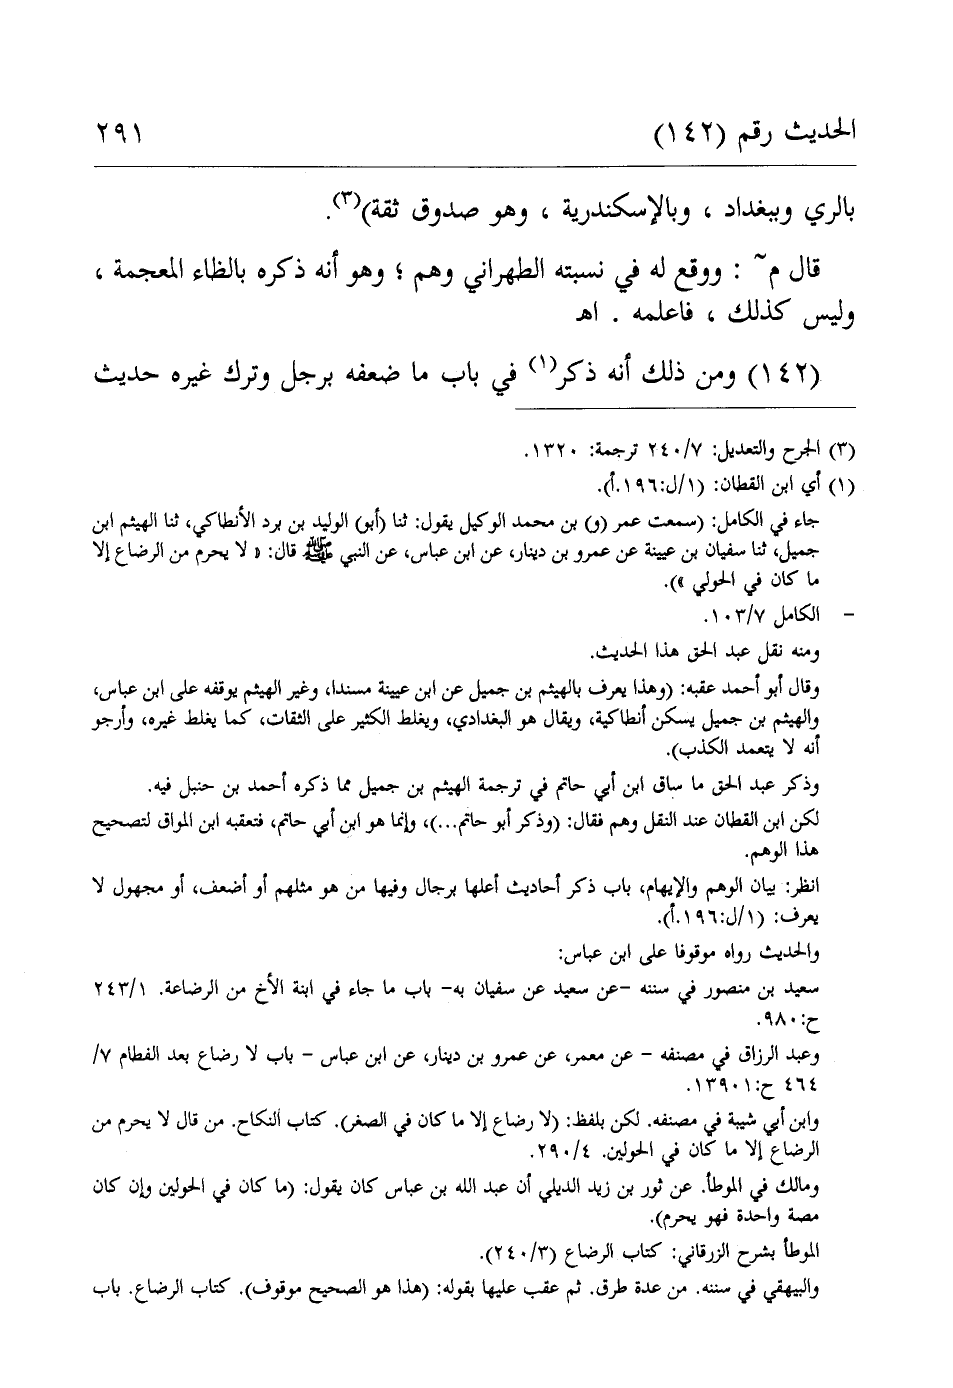 الحديث رقم (١٤٢) ٢٩١
بالري وببغداد ، وبالإسكندرية ، وهو صدوق ثقة)(٣).
قال م~ : ووقع له في نسبته الطهراني وهم ؛ وهو أنه ذكره بالظاء المعجمة ،
وليس كذلك ، فاعلمه . اهـ
(١٤٢) ومن ذلك أنه ذكر(١) في باب ما ضعفه برجل وترك غيره حديث
(٣) الجرح والتعديل: ٢٤٠/٧ ترجمة: ١٣٢٠.
(١) أي ابن القطان: (١/ل:١٩٦.أ).
جاء في الكامل: (سمعت عمر (و) بن محمد الوكيل يقول: ثنا (أبو) الوليد بن برد الأنطاكي، ثنا الهيثم ابن
جميل، ثنا سفيان بن عيينة عن عمرو بن دينار، عن ابن عباس، عن النبي ﷺ قال: « لا يحرم من الرضاع إلا
ما كان في الحولي »).
– الكامل ١٠٣/٧.
ومنه نقل عبد الحق هذا الحديث.
وقال أبو أحمد عقبه: (وهذا يعرف بالهيثم بن جميل عن ابن عيينة مسندا، وغير الهيثم يوقفه على ابن عباس،
والهيثم بن جميل يسكن أنطاكية، ويقال هو البغدادي، ويغلط الكثير على الثقات، كما يغلط غيره، وأرجو
أنه لا يتعمد الكذب).
وذكر عبد الحق ما ساق ابن أبي حاتم في ترجمة الهيثم بن جميل مما ذكره أحمد بن حنبل فيه.
لكن ابن القطان عند النقل وهم فقال: (وذكر أبو حاتم...)، وإنما هو ابن أبي حاتم، فتعقبه ابن المواق لتصحيح
هذا الوهم.
انظر: بيان الوهم والإيهام، باب ذكر أحاديث أعلها برجال وفيها من هو مثلهم أو أضعف، أو مجهول لا
يعرف: (١/ل:١٩٦.أ).
والحديث رواه موقوفا على ابن عباس:
سعيد بن منصور في سننه –عن سعيد عن سفيان به– باب ما جاء في ابنة الأخ من الرضاعة. ٢٤٣/١
ح:٩٨٠.
وعبد الرزاق في مصنفه – عن معمر، عن عمرو بن دينار، عن ابن عباس – باب لا رضاع بعد الفطام ٧/
٤٦٤ ح:١٣٩٠١.
وابن أبي شيبة في مصنفه. لكن بلفظ: (لا رضاع إلا ما كان في الصغر). كتاب النكاح. من قال لا يحرم من
الرضاع إلا ما كان في الحولين. ٢٩٠/٤.
ومالك في الموطأ. عن ثور بن زيد الديلي أن عبد الله بن عباس كان يقول: (ما كان في الحولين وإن كان
مصة واحدة فهو يحرم).
الموطأ بشرح الزرقاني: كتاب الرضاع (٢٤٠/٣).
والبيهقي في سننه. من عدة طرق. ثم عقب عليها بقوله: (هذا هو الصحيح موقوف). كتاب الرضاع. باب